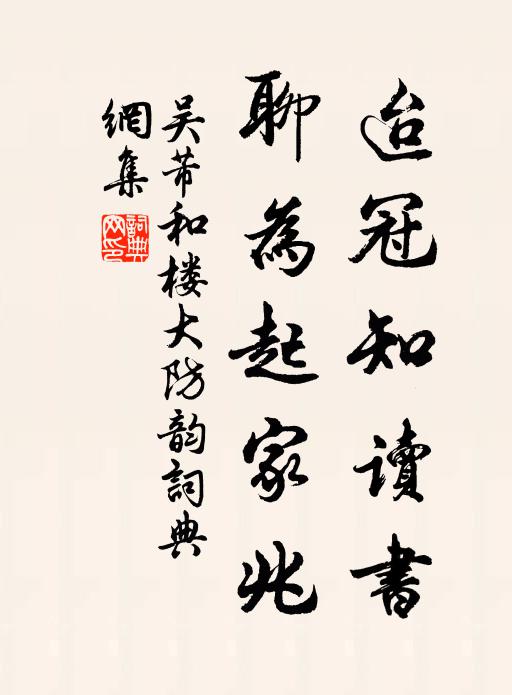 迨冠知讀書
聊為起家兆
吴芾和楼大防韵詞典
網集
詞典網印